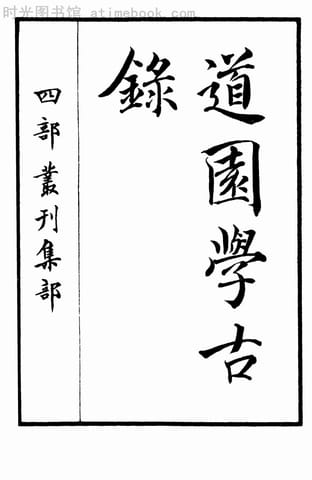 时光图书馆 - www.atimebook.com
道園學古
錄
四部叢刊集部